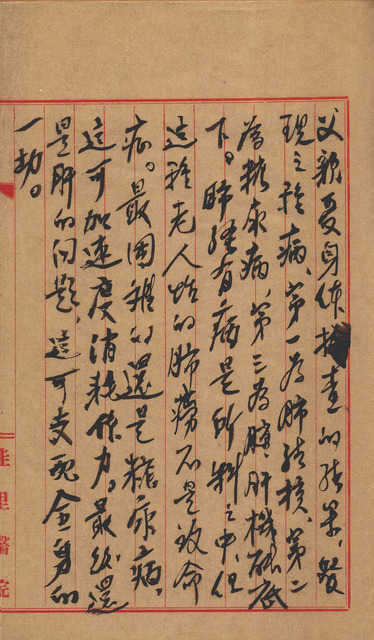 父親受身体檢查的結果，發
現三種病、第一為肺結核、第二
為糖尿病、第三為肝機
下。肺経有病是所料之中，但
這種老人性的肺癆不是致命
症。最困难的還是糖尿病、
這可加速度消耗体力。最後還
是肝的问题，這可支配全身的
一切。
佳里醫院